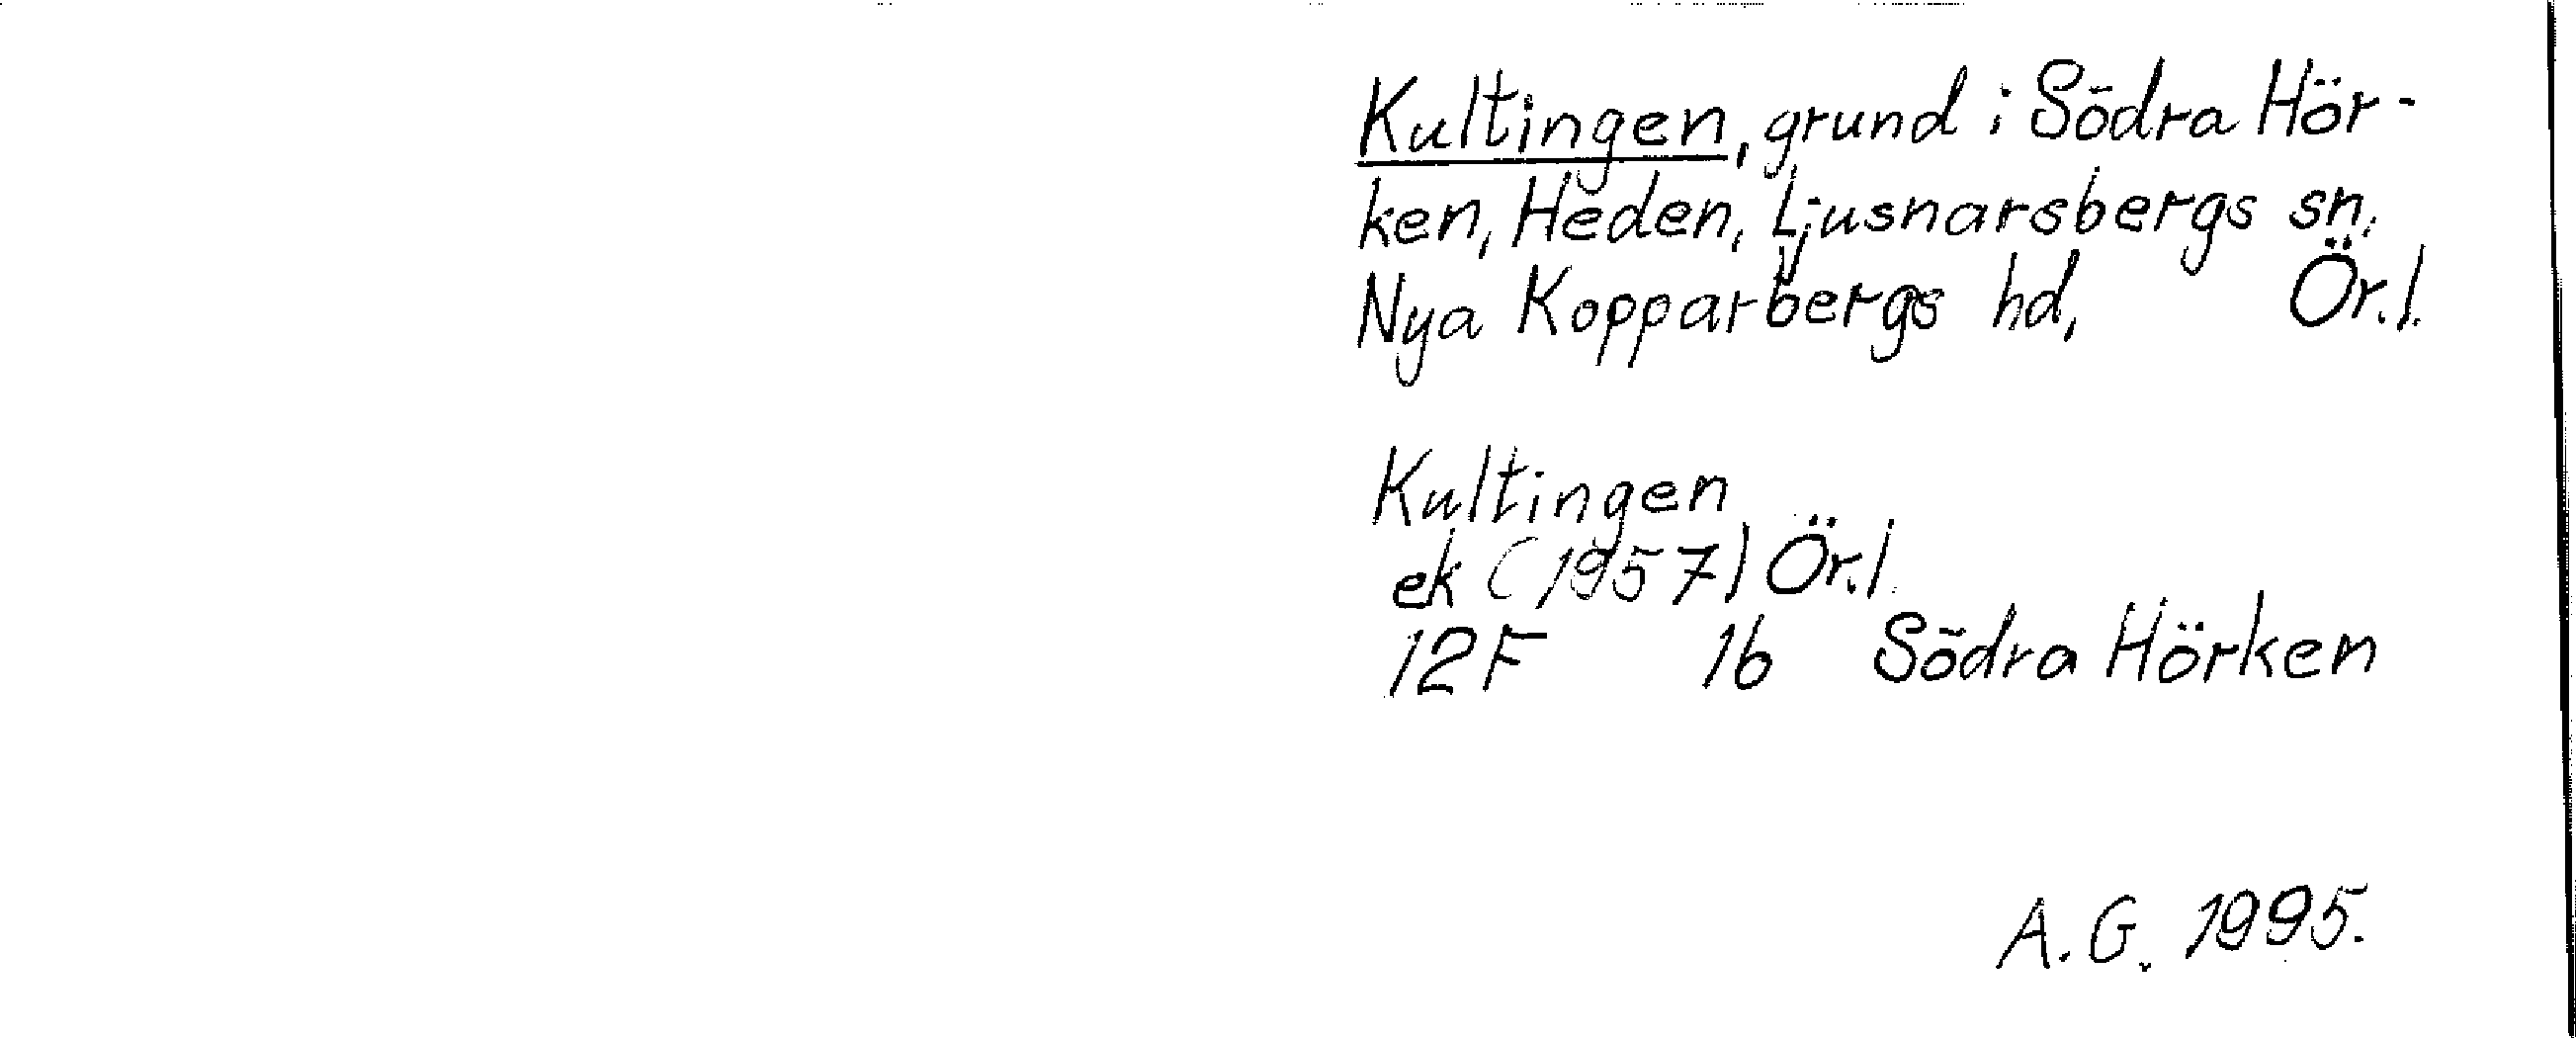 Kultingen, grund i Södra Hör-
ken, Heden, Ljusnarsbergs sn,
Nya Kopparbergs hd, Ör.l.
Kultingen
ek (1957) Ör.l.
12F 1b Södra Hörken
A.G. 1995.